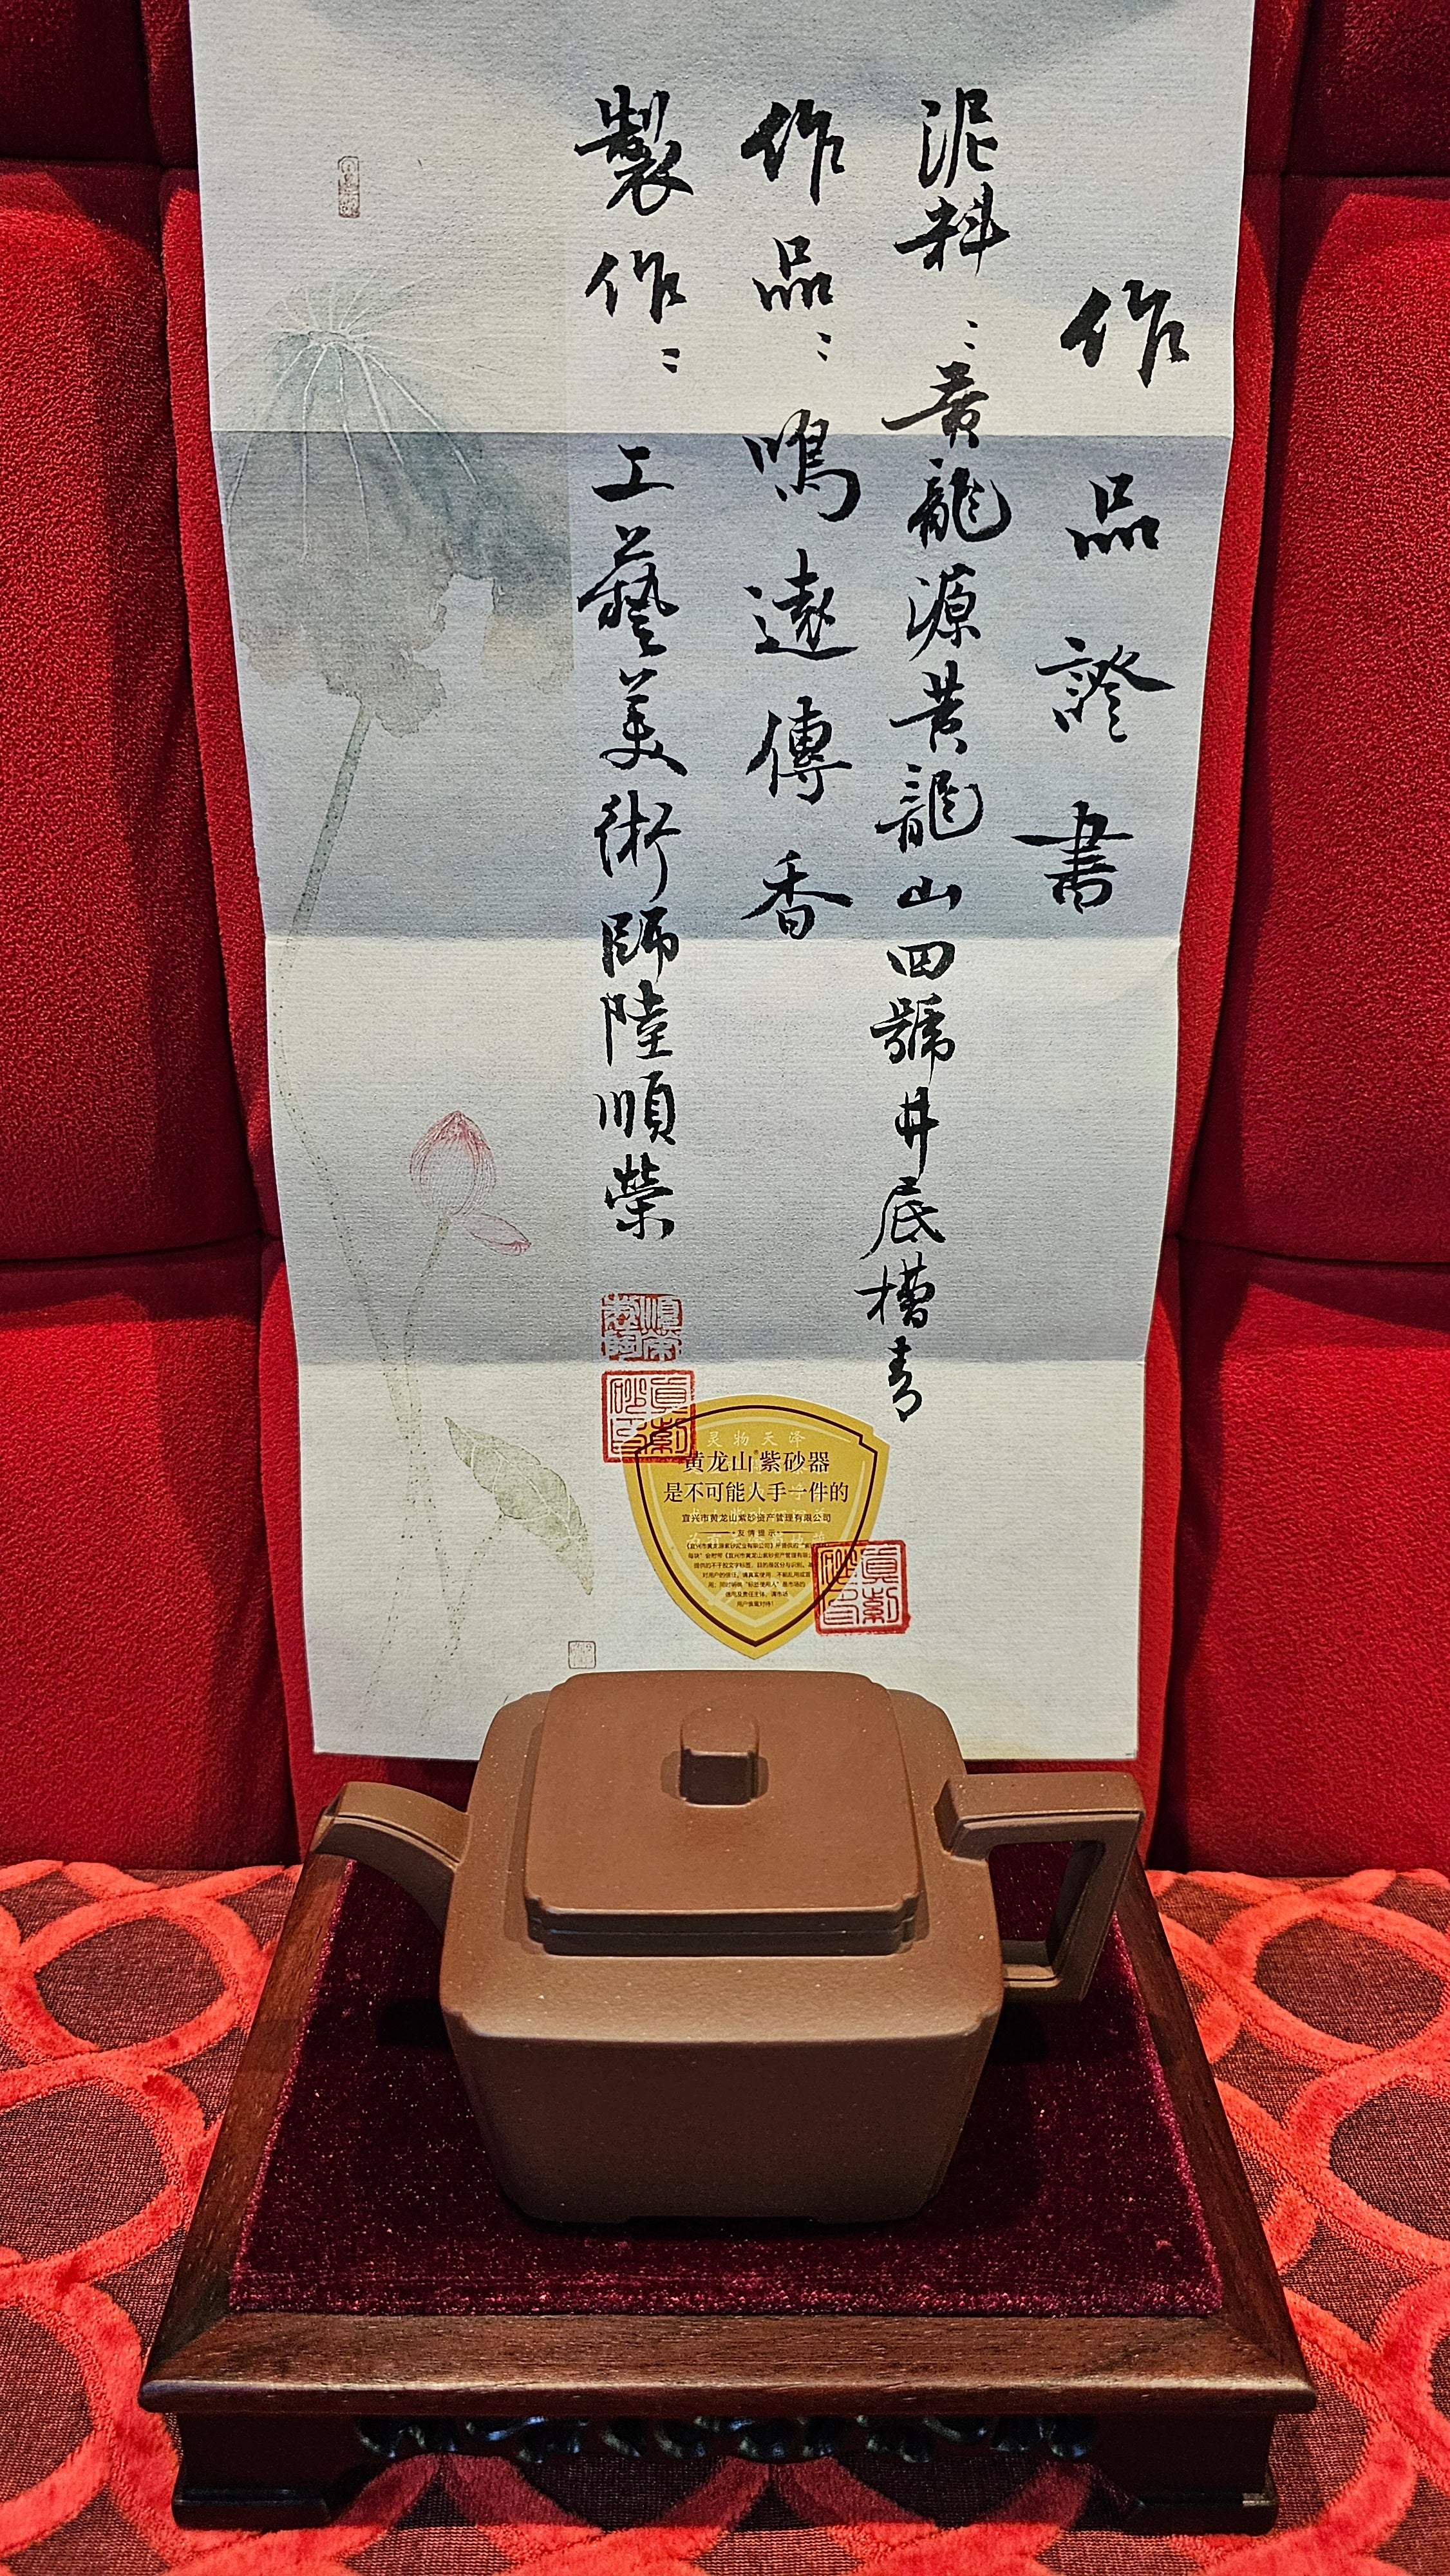 作品證書
泥料：黄龍源黄龍山四號井底槽青
作品：鳴遠傳香
製作：工藝美術師陸順榮
真紫砂印
灵物天泽
黄龙山紫砂器
是不可能人手一件的
宜兴市黄龙山紫砂资产管理有限公司
友情提示
真紫砂印